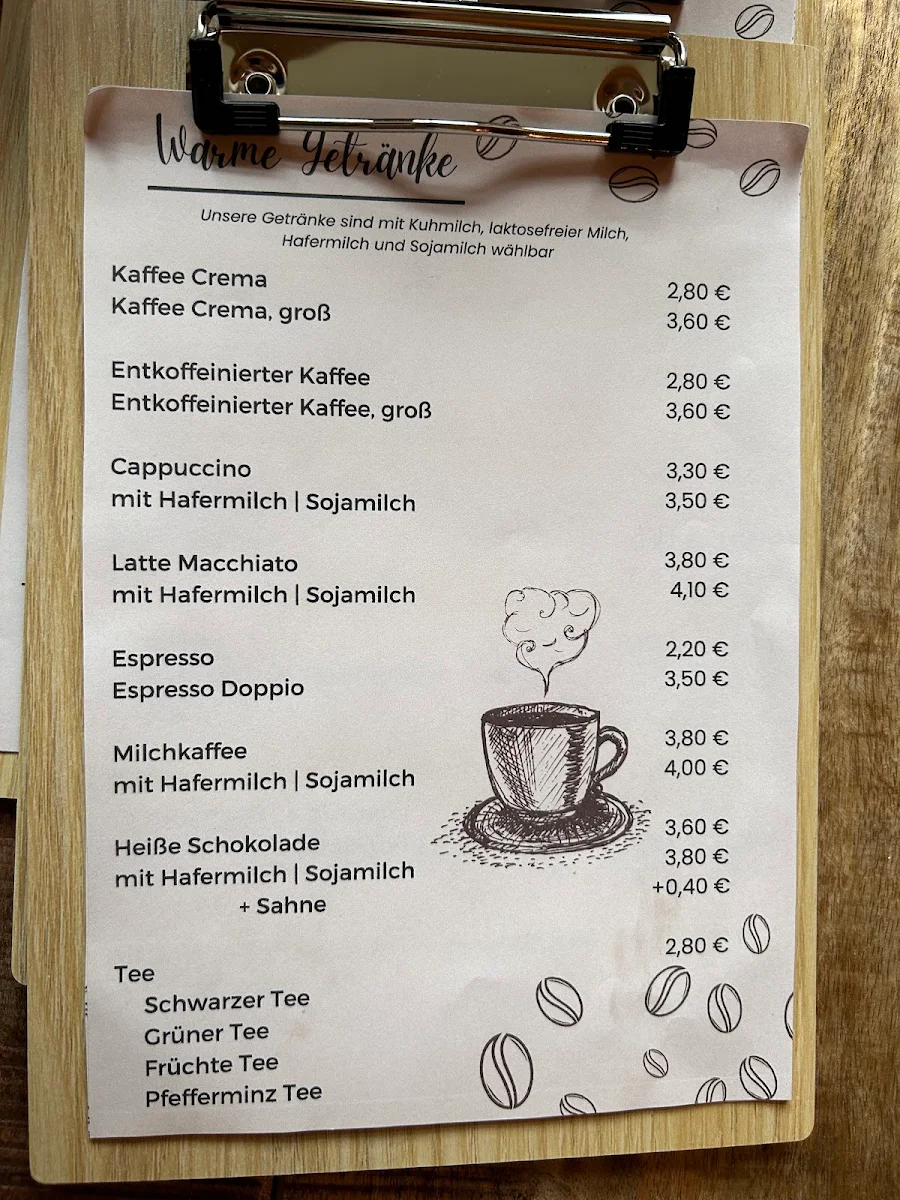 Warme Getränke
Unsere Getränke sind mit Kuhmilch, laktosefreier Milch,
Hafermilch und Sojamilch wählbar
Kaffee Crema 2,80 €
Kaffee Crema, groß 3,60 €
Entkoffeinierter Kaffee 2,80 €
Entkoffeinierter Kaffee, groß 3,60 €
Cappuccino 3,30 €
mit Hafermilch | Sojamilch 3,50 €
Latte Macchiato 3,80 €
mit Hafermilch | Sojamilch 4,10 €
Espresso 2,20 €
Espresso Doppio 3,50 €
Milchkaffee 3,80 €
mit Hafermilch | Sojamilch 4,00 €
Heiße Schokolade 3,60 €
mit Hafermilch | Sojamilch 3,80 €
+ Sahne +0,40 €
Tee 2,80 €
Schwarzer Tee
Grüner Tee
Früchte Tee
Pfefferminz Tee